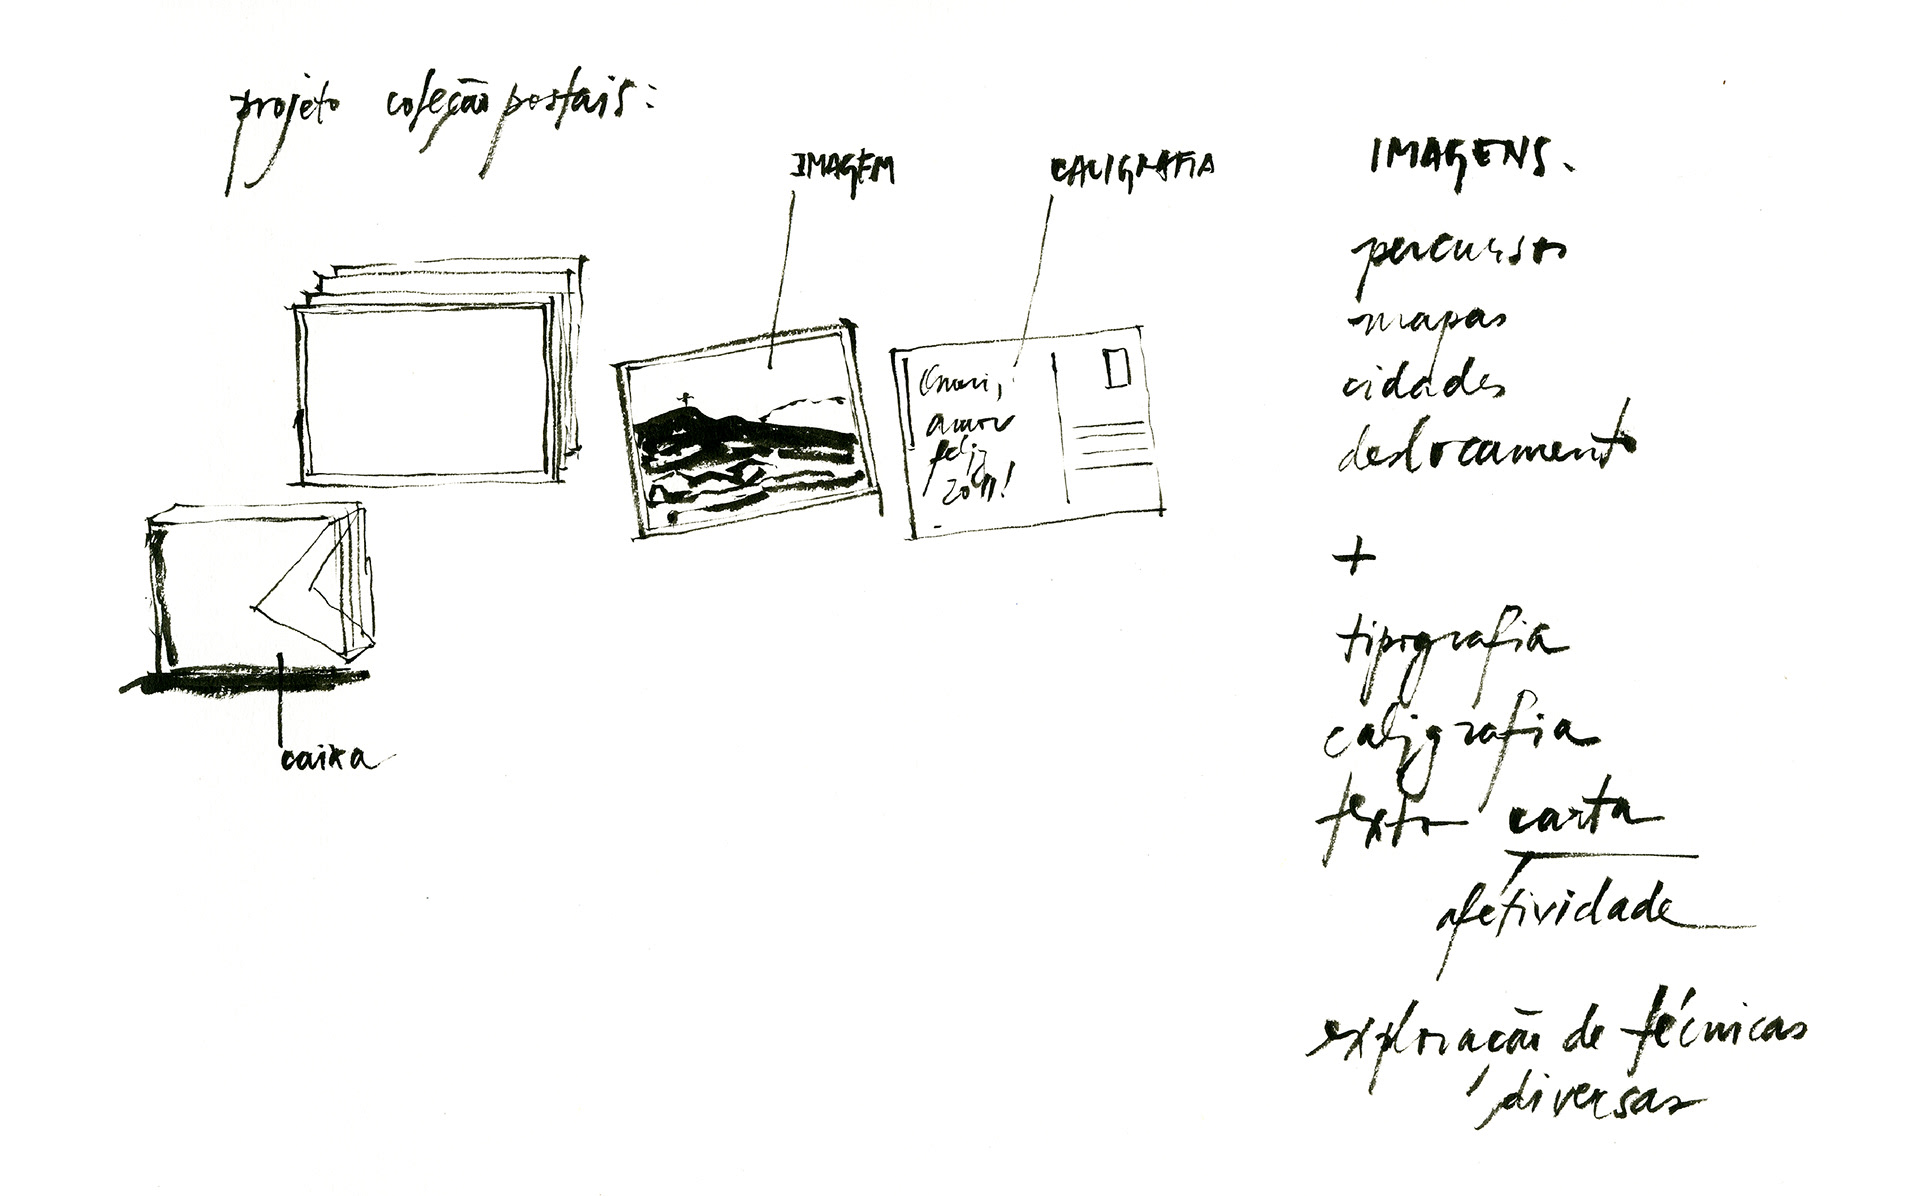 projeto coleção postais:
IMAGEM
CALIGRAFIA
amor
feliz
2011!
caixa
IMAGENS.
percursos
mapas
cidades
deslocamento
+
tipografia
caligrafia
texto carta
afetividade
exploração de técnicas
diversas